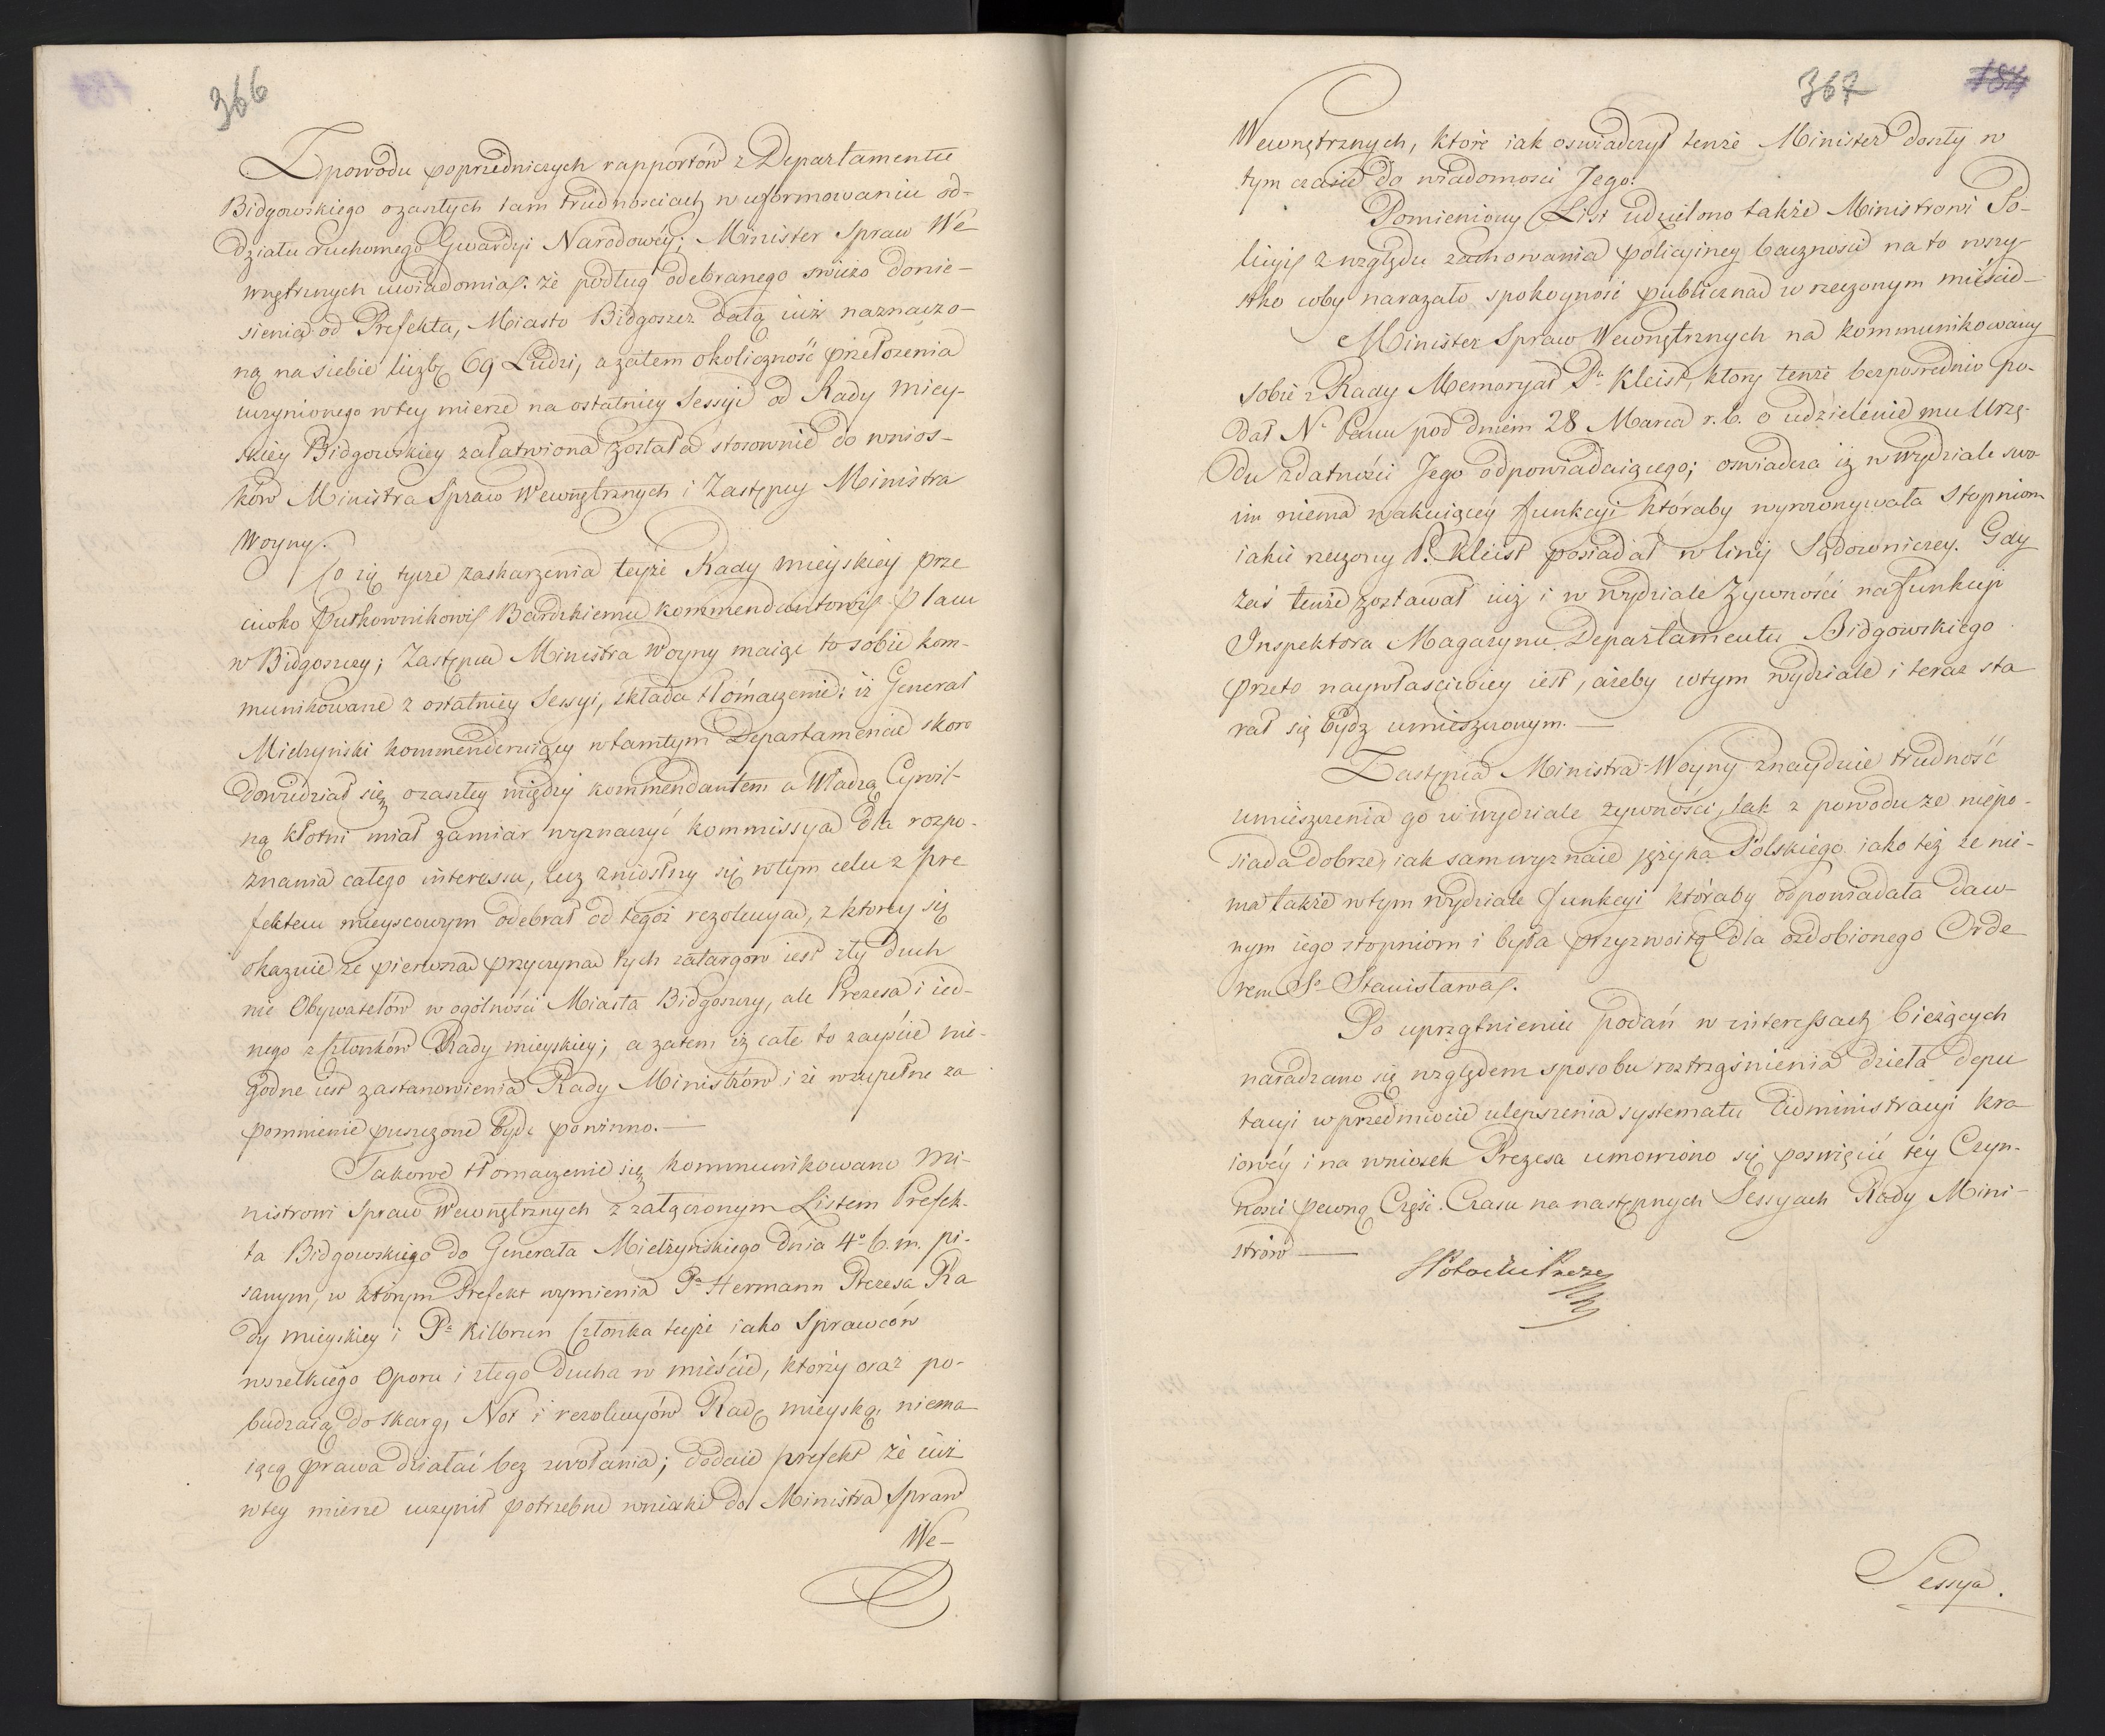 366
Z powodu poprzedniczych rapportów z Departamentu
Bidgowskiego ozaszłych tam trudnosciach w uformowaniu od-
działu ruchomego Gwardyi Narodowéy; Minister Spraw We
wnętrznych uwiadomia: że podług odebranego swieżo donie-
sienia od Prefekta, Miasto Bidgoszcz dało iuż naznaczo-
ną na siebie liczbę 69 Ludzi, a zatem okoliczność przełożenia
uczynionego wtey mierze na ostatniey Sessyi od Rady Miey-
skiey Bidgowskiey załatwiona została stosownie do wnios-
ków Ministra Spraw Wewnętrznych i Zastępcy Ministra
Woyny.
Co się tycze zaskarzenia teyże Rady mieyskiey prze
ciwko Pułkownikowi Bardzkiemu kommendantowi placu
w Bidgoszczy; Zastępca Ministra Woyny maiąc to sobie kom-
munikowane z ostatniey Sessyi, składa tłómaczenie: iż Generał
Mielzynski kommenderuiący wtamtym Departamencie skoro
dowiedział się ozaszłey między kommendantem a Władzą Cywil-
ną kłotni miał zamiar wyznaczyć kommissya dla rozpo-
znania całego interessu, lecz zniosłszy się wtym celu z Pre
fektem mieyscowym odebrał od tegoż rezolucyą, z ktorey się
okazuie że pierwszą przyczyną tych zatargow iest zły duch
nie Obywatelów w ogólności Miasta Bidgoszczy, ale Prezesa i ied-
nego z Członków Rady mieyskiey; a zatem iż całe to zayście nie-
godne iest zastanowienia Rady Ministrów i że wzupełne za
pomnienie puszczone bydź powinno.—
Takowe tłomaczenie się kommunikowano Mi-
nistrowi Spraw Wewnętrznych z załączonym Listem Prefek-
ta Bidgowskiego do Generała Mielżynskiego dnia 4o b. m. pi-
sanym, w którym Prefekt wymienia Pa Hermann Prezesa Ra
dy mieyskiey i Pa Kilbrun Członka teyże iako Sprawców
wszelkiego Oporu i złego ducha w mieście, ktorży oraz po-
budzaią do skarg, Not i rezolucyów Radę mieyską niema
iącą prawa działać bez zwołania; dodaie prefekt że iuż
wtey mierze uczynił potrzebne wnioski do Ministra Spraw
We-
367 184
Wewnętrznych, które iak oswiadczył tenże Minister doszły w
tym czasie do wiadomosci Jego.
Pomieniony List udzielono także Ministrowi Po-
licyi z względu zachowania policyiney baczności na to wszy
stko coby narazało spokoyność publiczną w rzeczonym mieście—
Minister Spraw Wewnętrznych na kommunikowany
sobie z Rady Memoryał Pa Kleist, ktory tenże bezpośrednio po-
dał N. Panu pod dniem 28 Marca r. b. o udzielenie mu Urzę-
du zdatności Jego odpowiadaiącego; oswiadcza iż w wydziale swo
im niema wakuiącéy funkcyi któraby wyrownywała Stopniom
iakie rzeczony P. Kleist posiadał w linij Sądowniczey. Gdy
zaś tenże zostawał iuż i w Wydziale Żywności na funkcyi
Inspektora Magazynu Departamentu Bidgowskiego
przeto naywłasciwiey iest, ażeby wtym wydziale i teraz sta
rał się bydź umieszczonym.—
Zastępca Ministra Woyny znayduie trudność
umieszczenia go w wydziale żywności, tak z powodu ze niepo-
siada dobrze, iak sam wyznaie języka Polskiego iako też że nie-
ma także wtym Wydziale funkcyi któraby odpowiadała daw-
nym iego stopniom i była przyzwoitą dla ozdobionego Orde
rem So Stanisława.
Po uprzątnieniu podań w interessach bieżących
naradzano się względem sposobu roztrząśnienia dzieła depu
tacyi w przedmiocie ulepszenia systematu Administracyi kra
iowéy i na wniosek Prezesa umowiono się poswięcić téy Czyn-
ności pewną Część Czasu na następnych Sessyach Rady Mini-
strów —
Sessya.